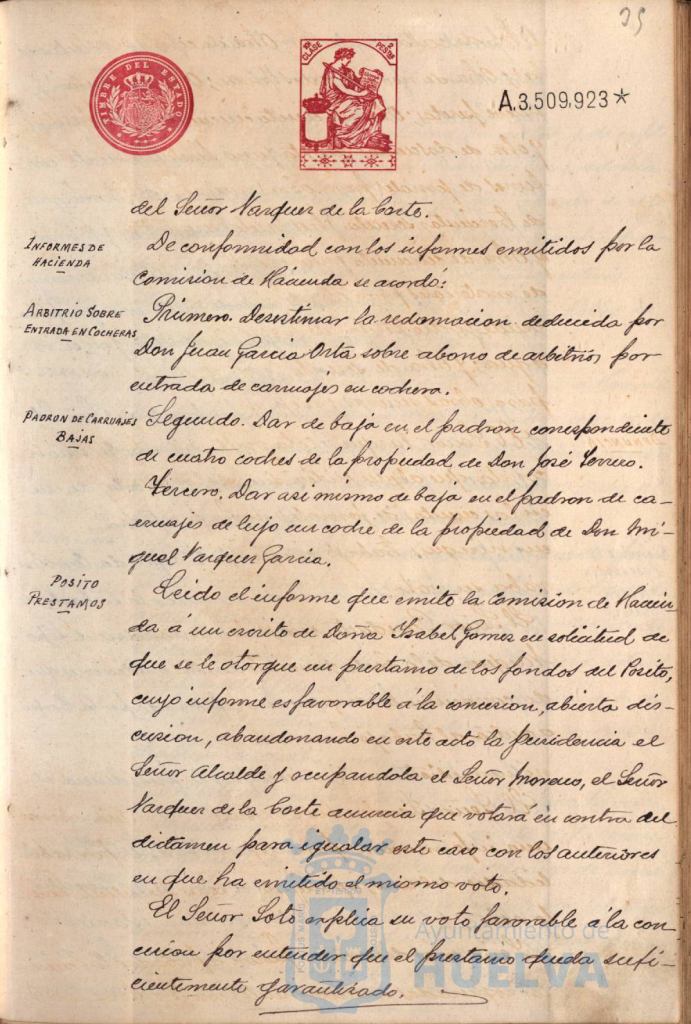 35
TIMBRE DEL ESTADO
10ª CLASE 2 PESETAS
A.3.509.923*
del Señor Vazquez de la Corte.
INFORMES DE
HACIENDA
De conformidad con los informes emitidos por la
comision de Hacienda se acordó:
ARBITRIO SOBRE
ENTRADA EN COCHERAS
Primero. Desestimar la reclamacion deducida por
Don Juan Garcia Orta sobre abono de arbitrios por
entrada de carruajes en cochera.
PADRON DE CARRUAJES
BAJAS
Segundo. Dar de baja en el padron correspondiente
de cuatro coches de la propiedad de Don José
Tercero. Dar asi mismo de baja en el padron de ca-
rruajes de lujo un coche de la propiedad de Don Mi-
guel Vazquez Garcia.
POSITO
PRESTAMOS
Leido el informe que emite la comision de Hacien-
da á un escrito de Doña Isabel Gomez en solicitud de
que se le otorgue un prestamo de los fondos del Posito,
cuyo informe es favorable á la concesion, abierta dis-
cusion, abandonando en este acto la presidencia el
Señor Alcalde y ocupandola el Señor Moreno, el Señor
Vazquez de la Corte anuncia que votará en contra del
dictamen para igualar este caso con los anteriores
en que ha emitido el mismo voto.
El Señor Soto explica su voto favorable á la con-
cesion por entender que el prestamo queda sufi-
cientemente garantizado.
Ayuntamiento de
HUELVA